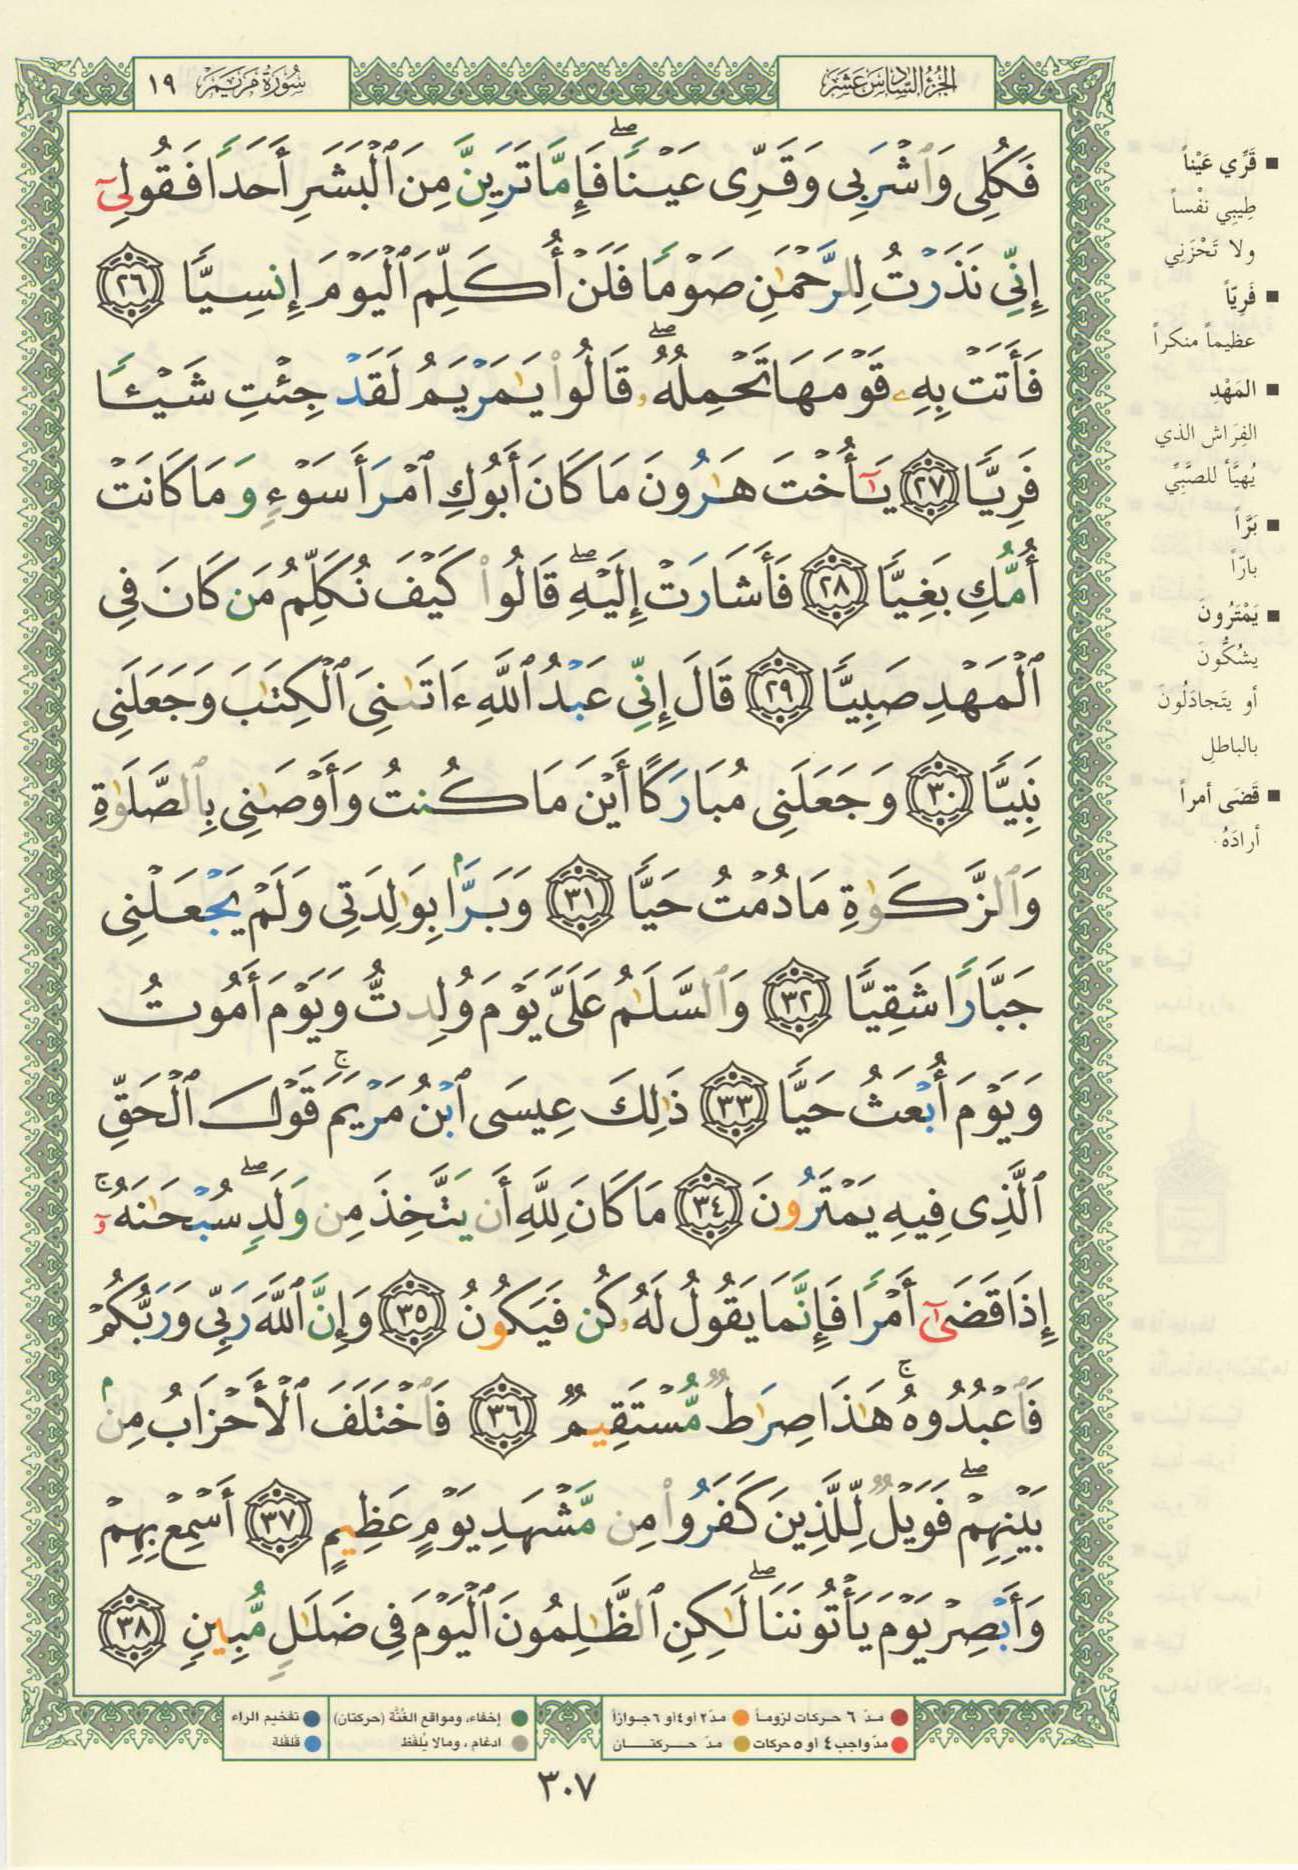 سُورَةُ مَرْيَم ١٩
الجُزْءُ السَّادِسَ عَشَر
فَكُلِى وَٱشْرَبِى وَقَرِّى عَيْنًا ۖ فَإِمَّا تَرَيِنَّ مِنَ ٱلْبَشَرِ أَحَدًا فَقُولِىٓ
إِنِّى نَذَرْتُ لِلرَّحْمَٰنِ صَوْمًا فَلَنْ أُكَلِّمَ ٱلْيَوْمَ إِنسِيًّا ٢٦
فَأَتَتْ بِهِۦ قَوْمَهَا تَحْمِلُهُۥ ۖ قَالُوا۟ يَٰمَرْيَمُ لَقَدْ جِئْتِ شَيْـًٔا
فَرِيًّا ٢٧ يَٰٓأُخْتَ هَٰرُونَ مَا كَانَ أَبُوكِ ٱمْرَأَ سَوْءٍ وَمَا كَانَتْ
أُمُّكِ بَغِيًّا ٢٨ فَأَشَارَتْ إِلَيْهِ ۖ قَالُوا۟ كَيْفَ نُكَلِّمُ مَن كَانَ فِى
ٱلْمَهْدِ صَبِيًّا ٢٩ قَالَ إِنِّى عَبْدُ ٱللَّهِ ءَاتَىٰنِىَ ٱلْكِتَٰبَ وَجَعَلَنِى
نَبِيًّا ٣٠ وَجَعَلَنِى مُبَارَكًا أَيْنَ مَا كُنتُ وَأَوْصَٰنِى بِٱلصَّلَوٰةِ
وَٱلزَّكَوٰةِ مَا دُمْتُ حَيًّا ٣١ وَبَرًّۢا بِوَٰلِدَتِى وَلَمْ يَجْعَلْنِى
جَبَّارًا شَقِيًّا ٣٢ وَٱلسَّلَٰمُ عَلَىَّ يَوْمَ وُلِدتُّ وَيَوْمَ أَمُوتُ
وَيَوْمَ أُبْعَثُ حَيًّا ٣٣ ذَٰلِكَ عِيسَى ٱبْنُ مَرْيَمَ ۚ قَوْلَ ٱلْحَقِّ
ٱلَّذِى فِيهِ يَمْتَرُونَ ٣٤ مَا كَانَ لِلَّهِ أَن يَتَّخِذَ مِن وَلَدٍ ۖ سُبْحَٰنَهُۥٓ ۚ
إِذَا قَضَىٰٓ أَمْرًا فَإِنَّمَا يَقُولُ لَهُۥ كُن فَيَكُونُ ٣٥ وَإِنَّ ٱللَّهَ رَبِّى وَرَبُّكُمْ
فَٱعْبُدُوهُ ۚ هَٰذَا صِرَٰطٌ مُّسْتَقِيمٌ ٣٦ فَٱخْتَلَفَ ٱلْأَحْزَابُ مِنۢ
بَيْنِهِمْ ۖ فَوَيْلٌ لِّلَّذِينَ كَفَرُوا۟ مِن مَّشْهَدِ يَوْمٍ عَظِيمٍ ٣٧ أَسْمِعْ بِهِمْ
وَأَبْصِرْ يَوْمَ يَأْتُونَنَا ۖ لَٰكِنِ ٱلظَّٰلِمُونَ ٱلْيَوْمَ فِى ضَلَٰلٍ مُّبِينٍ ٣٨
■ قَرِّي عَيْناً
طِيبِي نفْساً
ولا تَحْزَنِي
■ فَرِيّاً
عظيماً منكراً
■ المَهْدِ
الفِرَاش الذي
يُهيَّأ للصَّبِّي
■ بَرّاً
بارّاً
■ يَمْتَرُونَ
يشُكُّونَ
أو يتَجادَلُونَ
بالباطلِ
■ قَضَى أمراً
أرادَهُ
مـدّ ٦ حركات لزوماً مدّ ٢ أو ٤ أو ٦ جوازاً إخفاء، ومواقع الغُنَّة (حركتان) تفخيم الراء
مدّ واجب ٤ أو ٥ حركات مدّ حــركتــان ادغام ، ومالا يُلفَظ قلقلة
٣٠٧